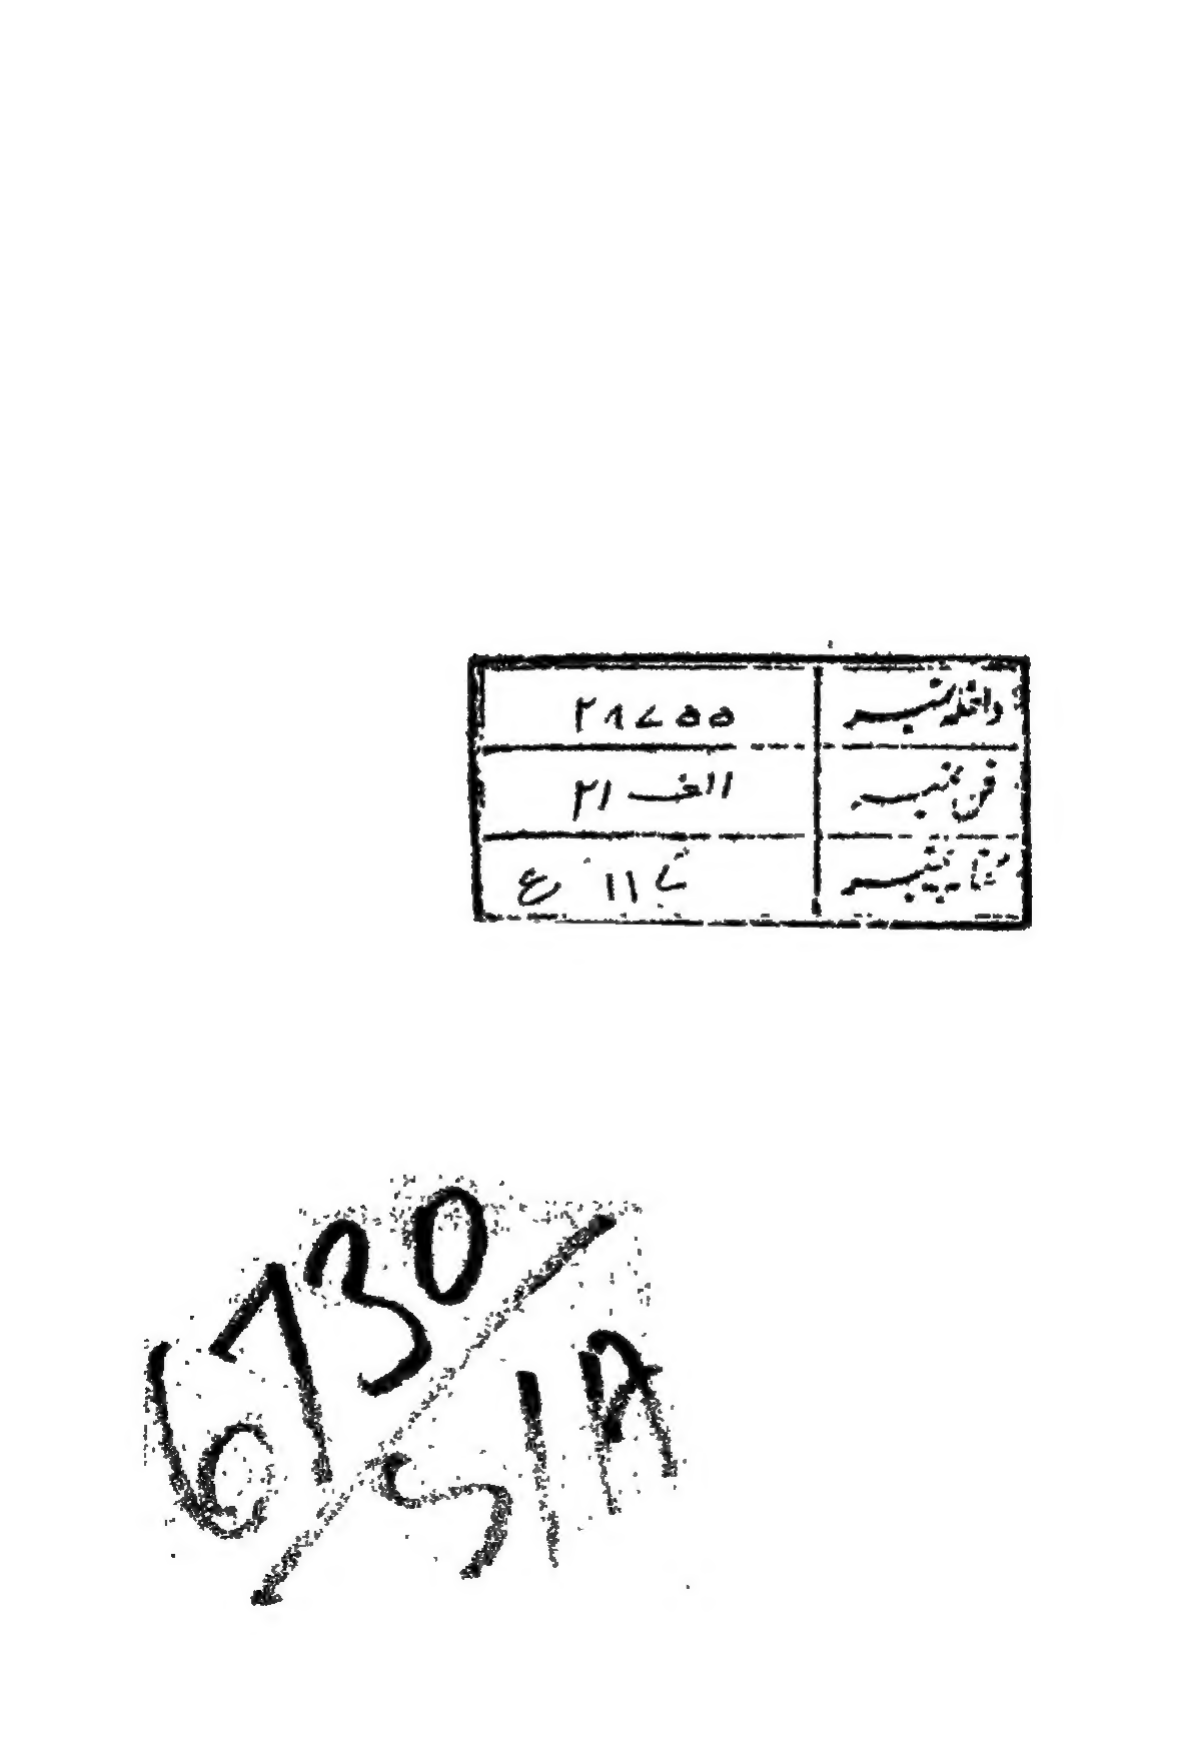 داخلہ نمبر ۲۸۷۵۵
فن نمبر الف ۲۱
نمبر ۱۱ ع
6730
SIA